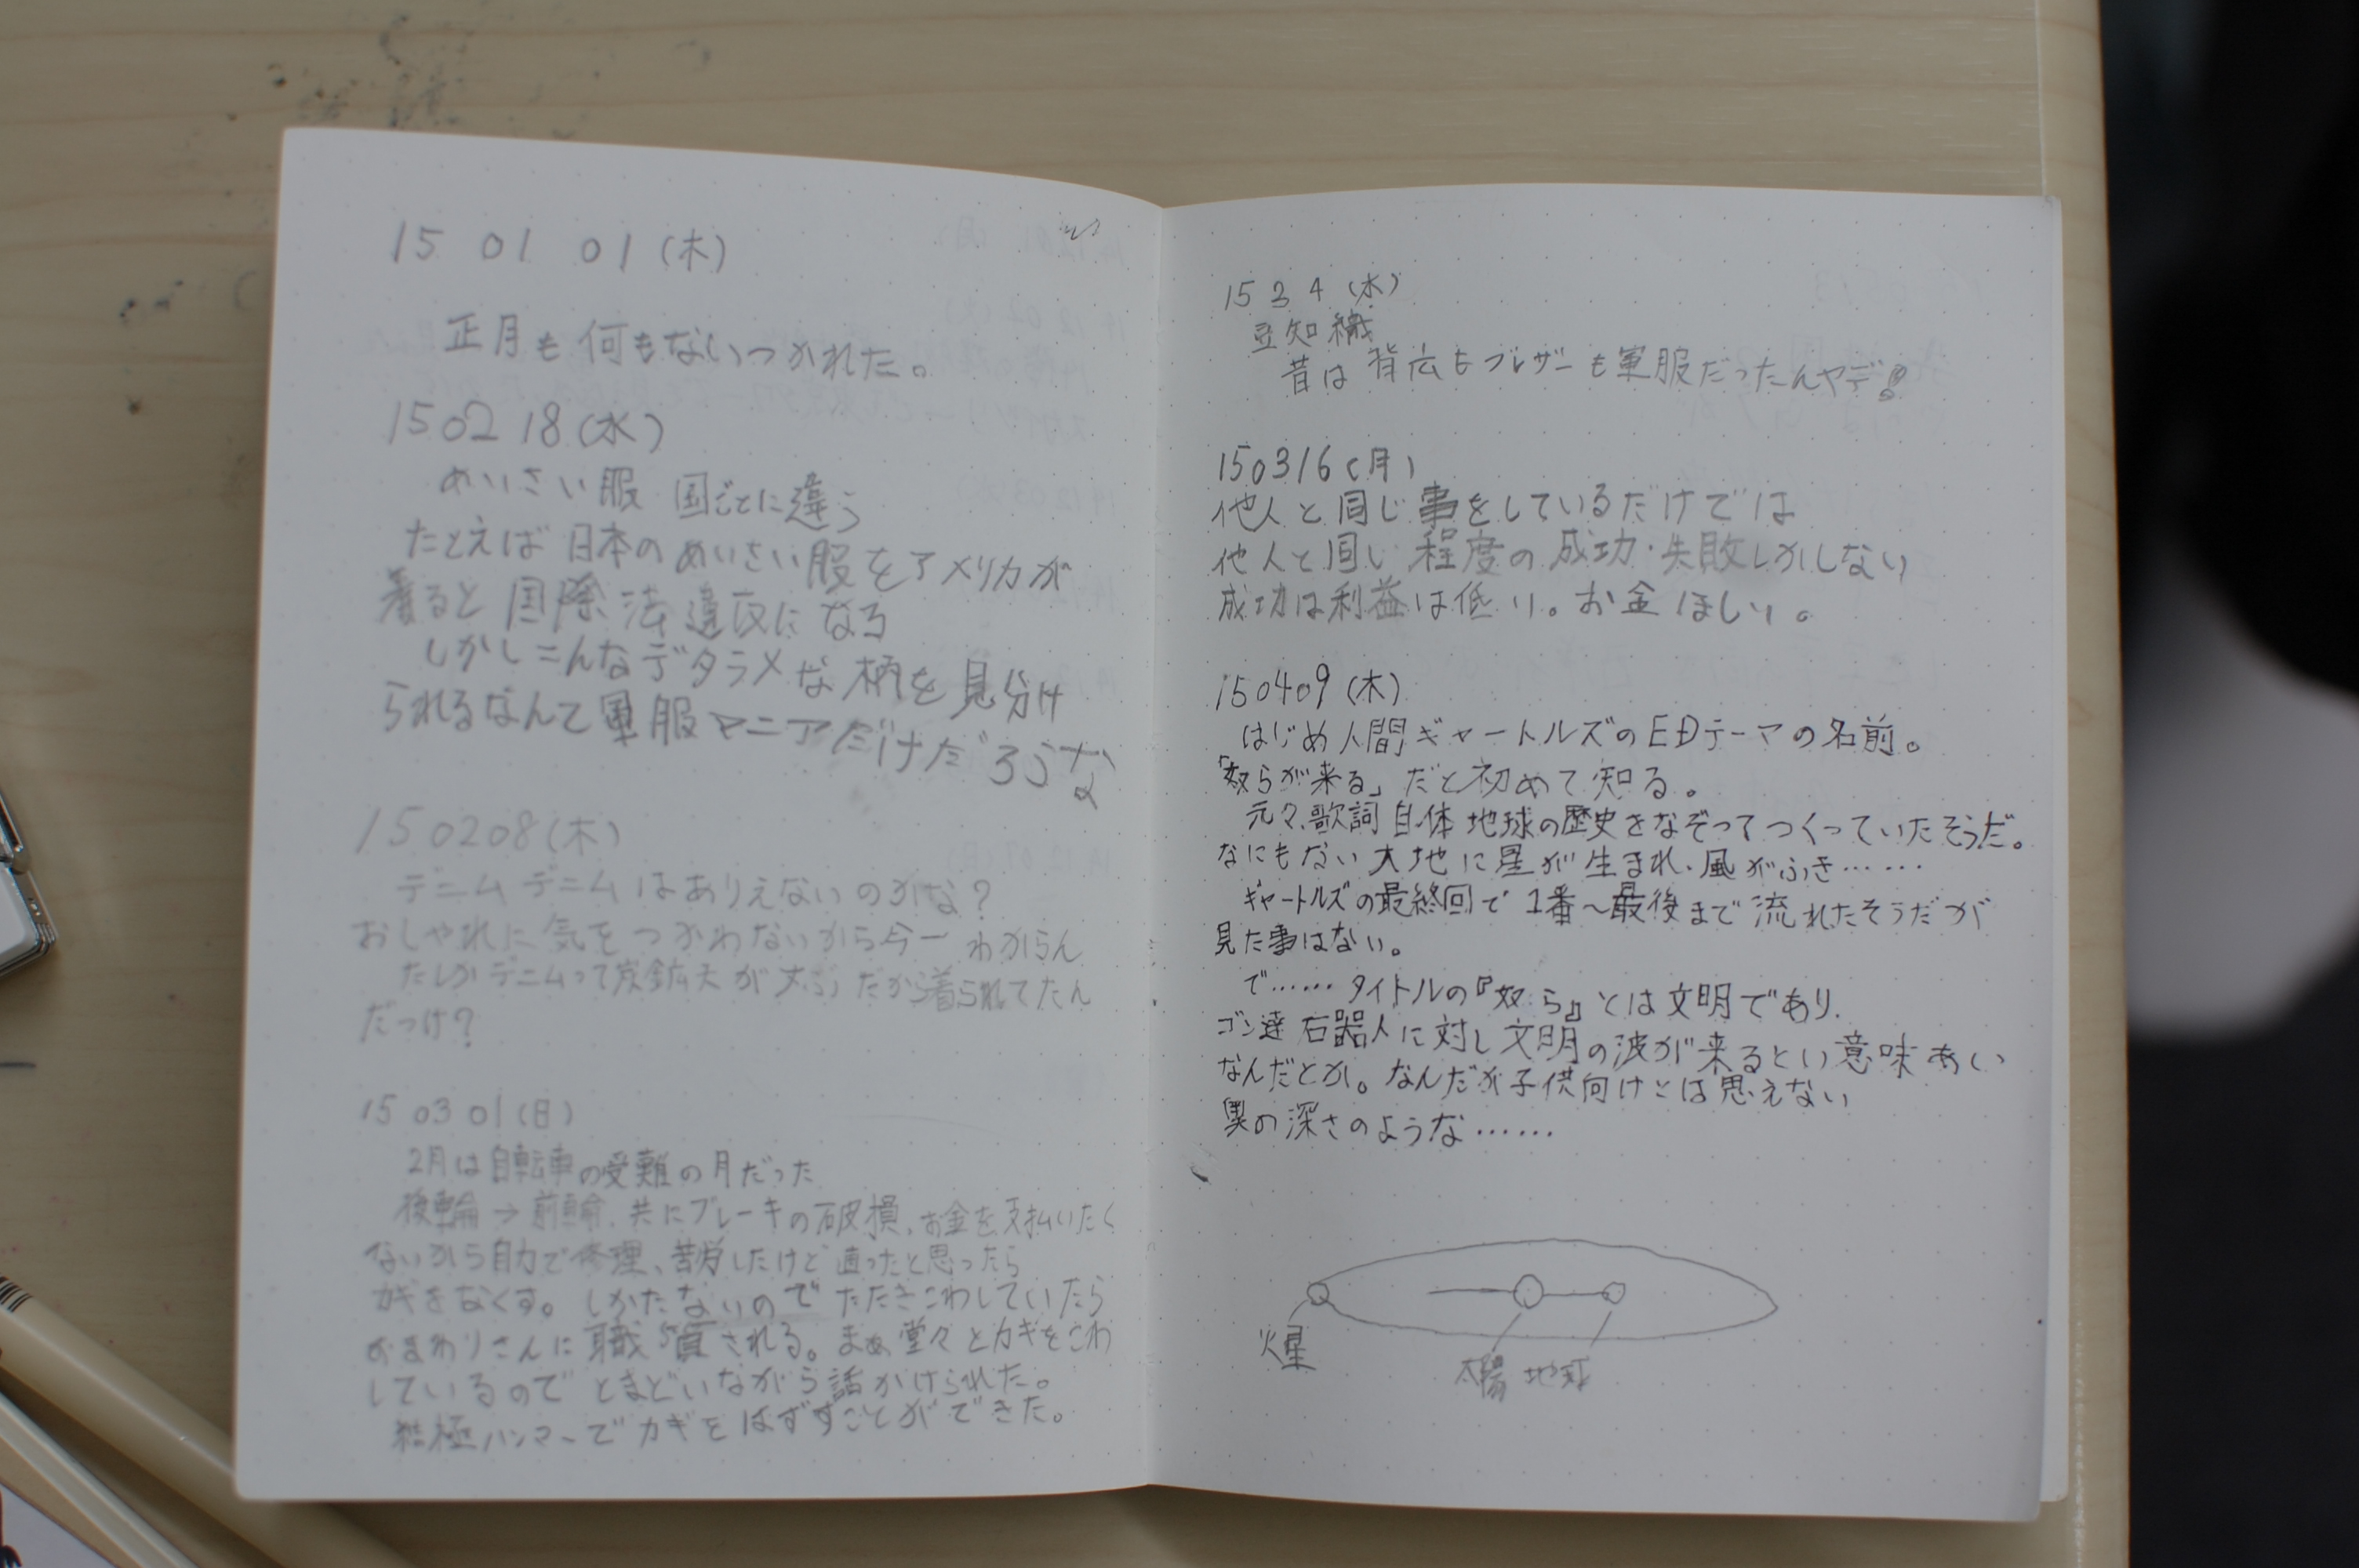 15 01 01(木)
正月も何もないつかれた。
15 02 18(水)
めいさい服 国ごとに違う
たとえば日本のめいさい服をアメリカが
着ると国際法違反になる
しかしこんなデタラメな柄を見分け
られるなんて軍服マニアだけだろうな
15 02 08(木)
デニムデニムはありえないのかな?
おしゃれに気をつかわないから今一わからん
たしかデニムって炭鉱夫が丈ぶだから着られてたん
だっけ?
15 03 01(日)
2月は自転車の受難の月だった
後輪→前輪、共にブレーキの破損、お金を支払いたく
ないから自力で修理、苦労したけど直ったと思ったら
カギをなくす。しかたないのでたたきこわしていたら
おまわりさんに職質される。まぁ堂々とカギをこわ
しているのでとまどいながら話かけられた。
結極ハンマーでカギをはずすことができた。
15 3 4(水)
豆知織
昔は背広もブレザーも軍服だったんやデ!
150316(月)
他人と同じ事をしているだけでは
他人と同じ程度の成功・失敗しかしない
成功は利益は低い。お金ほしい。
150409(木)
はじめ人間ギャートルズのEDテーマの名前。
「奴らが来る」だと初めて知る。
元々、歌詞自体地球の歴史をなぞってつくっていたそうだ。
なにもない大地に星が生まれ、風がふき……
ギャートルズの最終回で1番~最後まで流れたそうだが
見た事はない。
で……タイトルの『奴ら』とは文明であり、
ゴン達石器人に対し文明の波が来るとい意味あい
なんだとか。なんだが子供向けとは思えない
奥の深さのような……
火星
太陽 地球